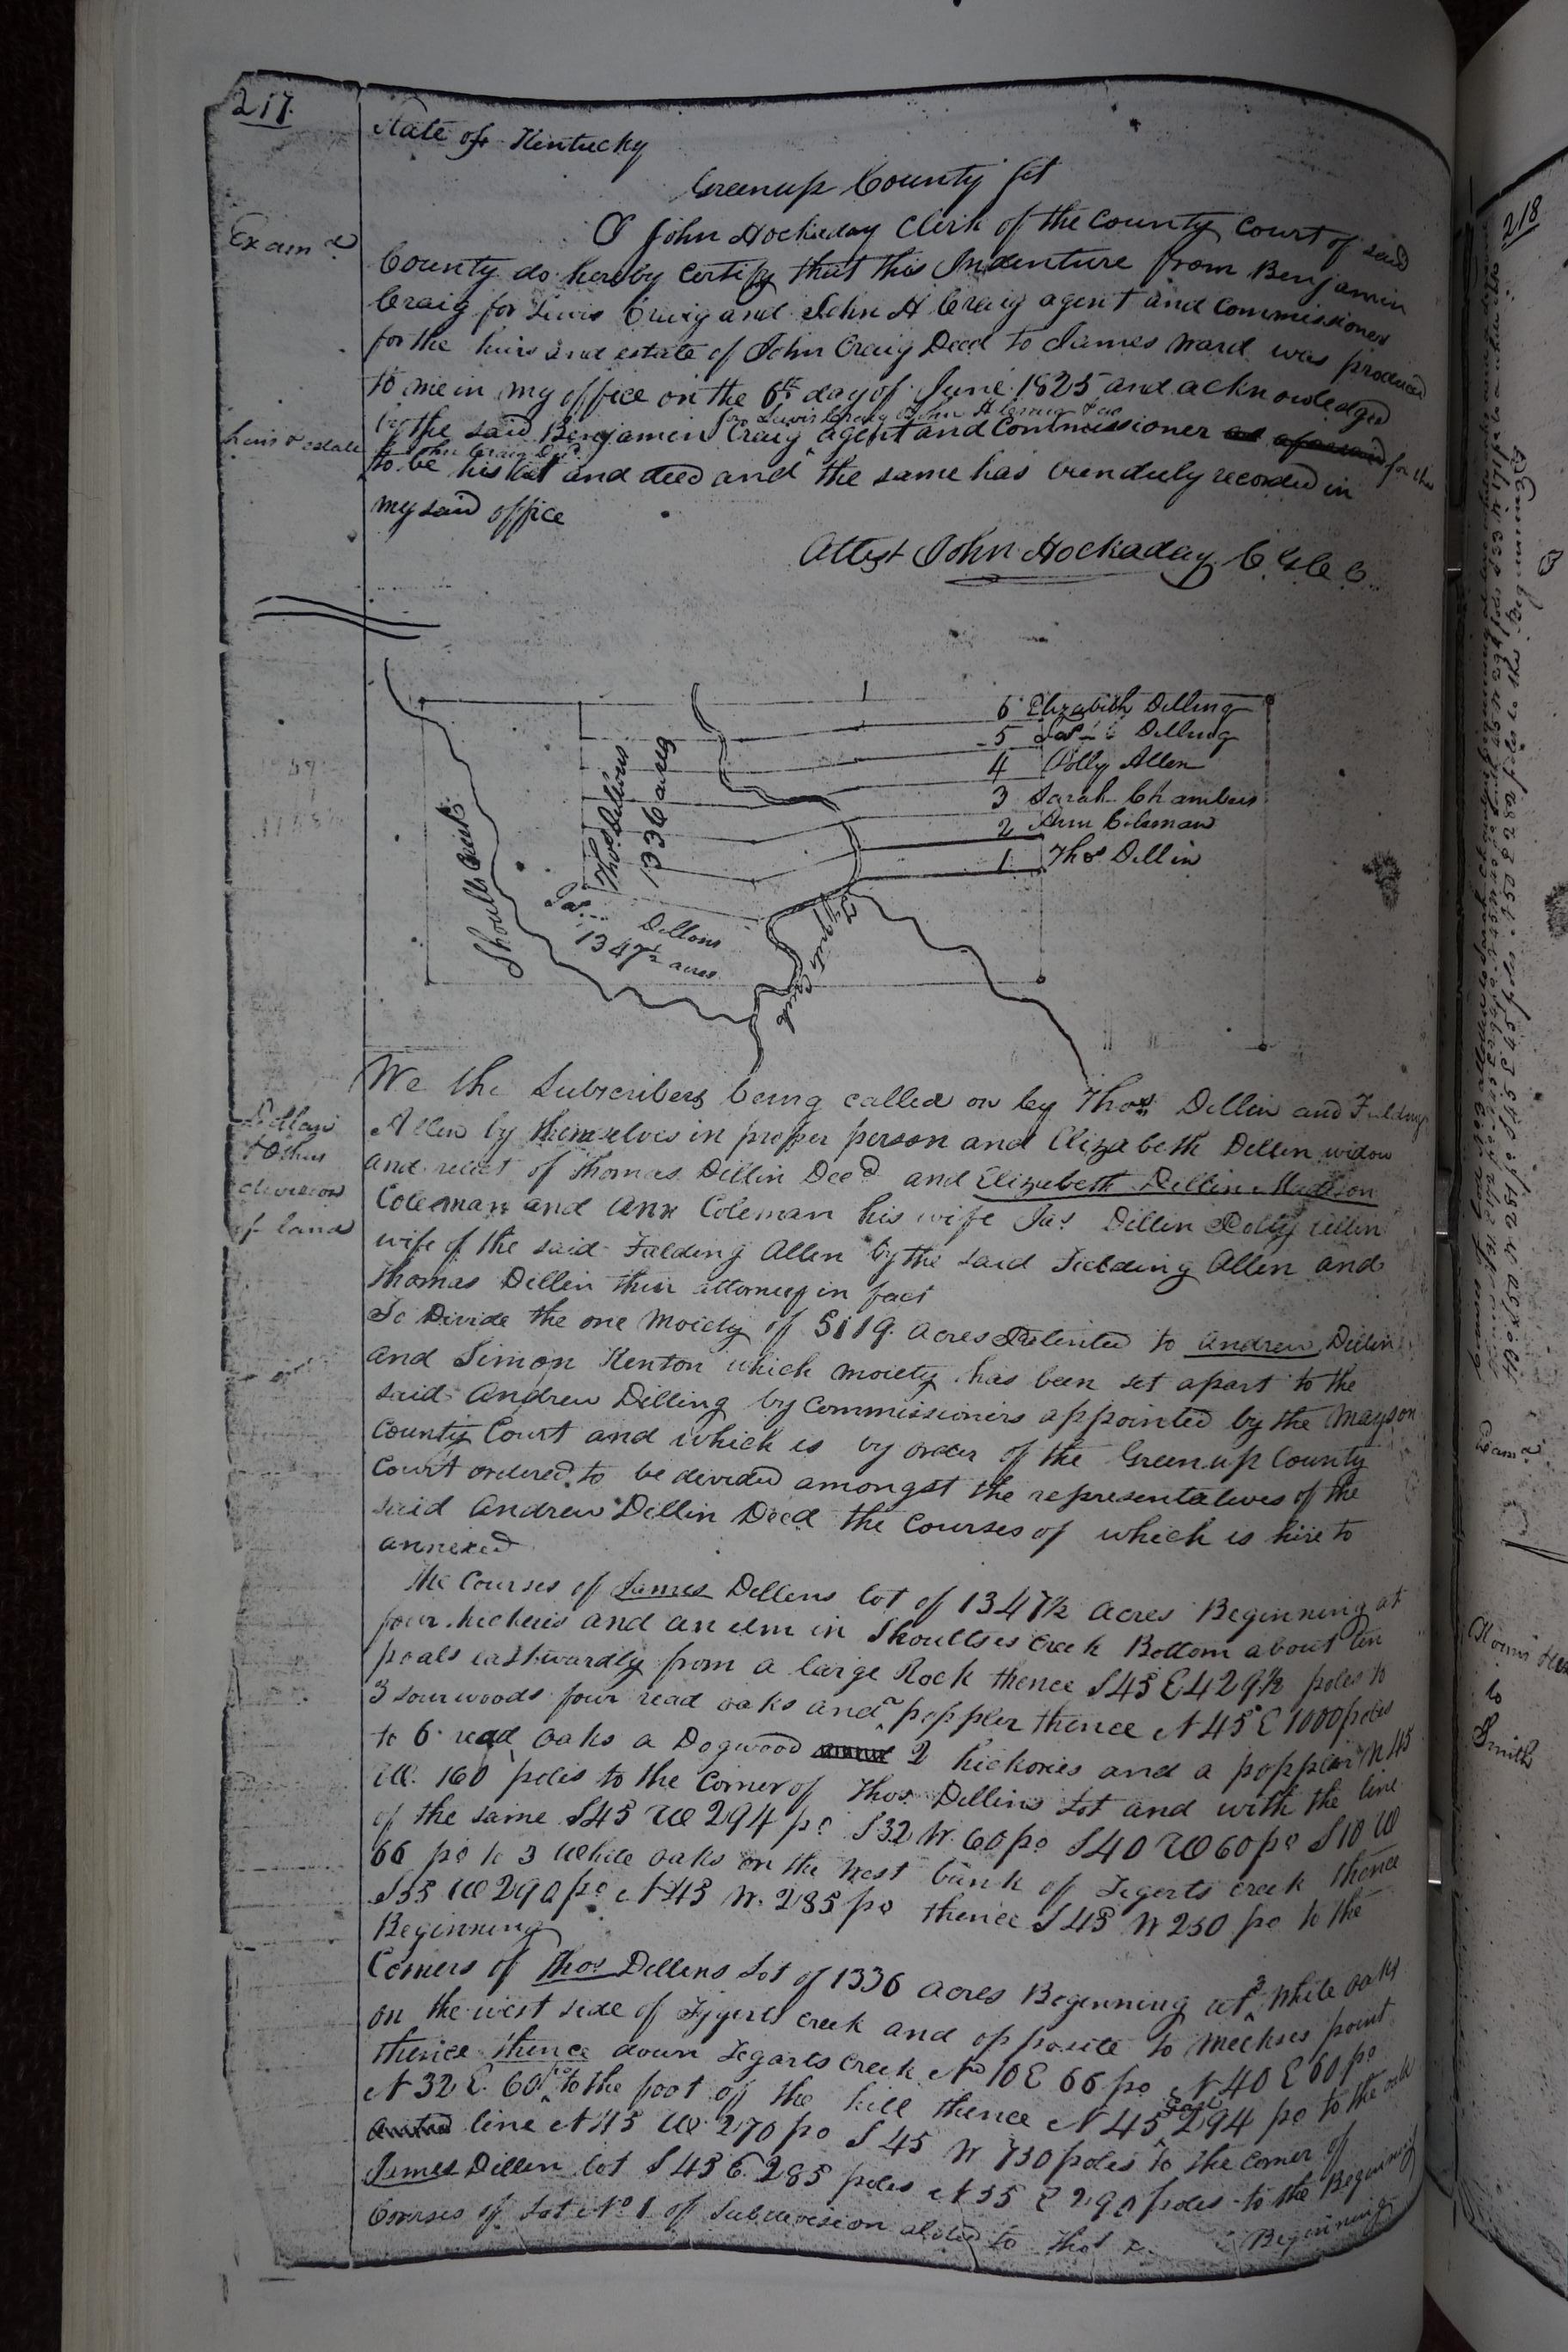 217.
State of Kentucky
Greenup County Sct
Examd
I John Hockaday Clerk of the County Court of said
County do hereby Certify that this Indenture from Benjamin
Craig for Lewis Craig and John H Craig agent and Commissioner
for the heirs and estate of John Craig Decd to James Ward was produced
to me in my office on the 6th day of June 1825 and acknowledged
for Lewis Craig & John H Craig
by the said Benjamin Craig agent and Commissioner as aforesaid for the
heirs & estate John Craig Decd
to be his act and deed and the same has been duly recorded in
my said office
Attest John Hockaday C. G C C.
6 Elizabeth Dilling
5 Jas Dilling
4 Polly Allen
3 Sarah Chambers
2 Ann Coleman
1 Thos Dillin
Shoults Creek
Thos Dillons
1336 acres
Jas Dillons
1347½ acres
Tygerts Creek
We the Subscribers being called on by Thos Dillin and Fielding
Dillan
& Others
division
of land
Allen by themselves in proper person and Elizabeth Dillin widow
and relict of Thomas Dillin Decd and Elizebeth Dillin
Coleman and Ann Coleman his wife Jas Dillin Polly Allen
wife of the said Falding Allen by the said Fielding Allen and
Thomas Dillin their attorney in fact
To Divide the one Moiety of 5119 acres Patented to Andrew Dillin
and Simon Kenton which moiety has been set apart to the
said Andrew Dilling by Commissioners appointed by the Mayson
County Court and which is by order of the Greenup County
Court ordered to be devided amongst the representatives of the
said Andrew Dillin Decd the Courses of which is hire to
annexed
The Courses of James Dillens lot of 1347½ acres Beginning at
four hickeries and an elm in Shoultses Creek Bottom about ten
poals eastwardly from a large Rock thence S45 E 429½ poles to
3 sourwoods four read oaks and a poppler thence N 45 E 1000 poles
to 6 read oaks a Dogwood 2 hickories and a popplar N 45
W. 160 poles to the Corner of Thos Dillins Lot and with the line
of the same S45 W 294 po S 32 W. 60 po S 40 W 60 po S 10 W
66 po to 3 White oaks on the West bank of Tegerts Creek thence
S 55 W 290 po N 45 W. 285 po thence S 45 W 250 po to the
Beginning
Corners of Thos Dillens Lot of 1336 acres Beginning at 3 White oaks
on the west side of Tygerts Creek and opposite to Meekses point
thence thence down Tegarts Creek No 10 E 66 po N 40 E 60 po
N 32 E. 60 po to the foot of the hill thence N 45 East 294 po to the out
line N 45 W 270 po S 45 W 730 poles to the corner of
James Dillen lot S 45 E 285 poles N 55 E 290 poles to the Beginning
Courses of Lot No 1 of Subdevision aloted to Thos Beginning
218
Examd
to
Smith